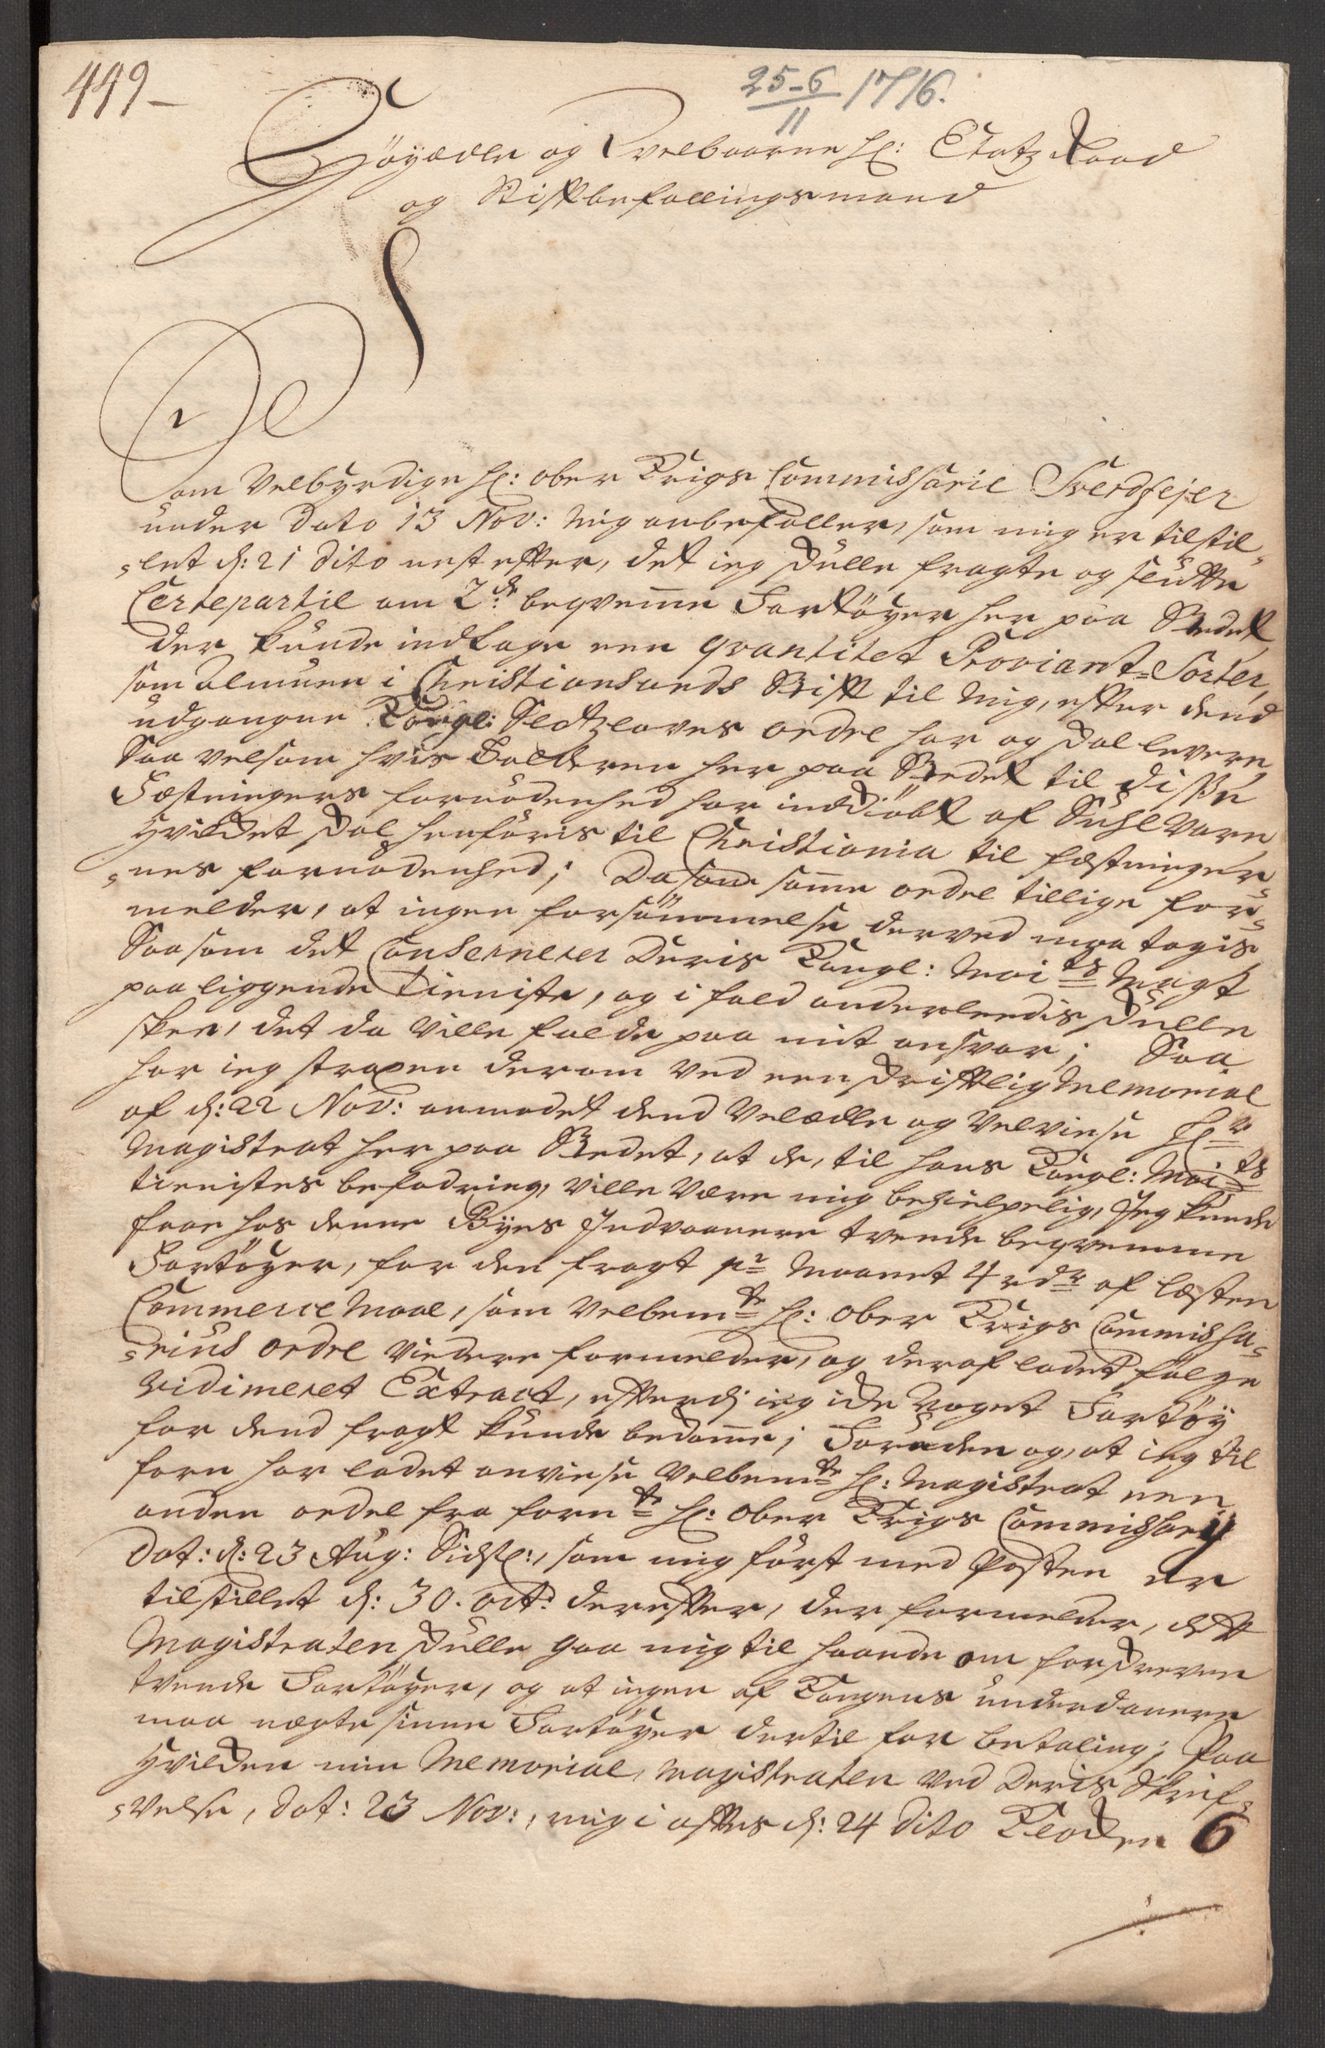 449–
25-6/11 1716.
Höyædle og Velbaarne H: Etatz Raad
og Stiftbefallingsmand
Som Velbyrdige H: ober Krigs Commissarie Sverdfejer
under Dato 13 Nov: mig anbefaller, som mig er tilstil-
let d: 21 dito nest effter, det ieg skulle fragte og slutte
Certepartie om 2de beqvemme Fartöyer her paa Stedet
der kunde indtage een qvantitet Proviant-Sorter,
som Almuen i Christiansands Stift til mig, efter dend
udgangne Kongl: Slotzlovens ordre har og skal levere,
Saa velsom hvis her paa Stedet til disse
Fæstningers fornödenhed har indkiöbt af Vare,
hvilcket skal henföris til Christiania til fæstninger-
nes fornödenhed; Dasom samme ordre tillige for-
melder, at ingen forsömmelse derved maa tagis,
Saasom det Conserneren Deris Kongl: Maits Magt
paaliggende tieniste, og i fald anderleedis skulle
skee, det da ville falde paa mit ansvar; Saa
har ieg straxen derom ved een skriftlig Memorial
af d: 22 Nov: anmodet dend Velædle og Velviese Hr
Magistrat her paa Stedet, at de, til hans Kongl: Maits
tienistes befodring, ville være mig behielpelig, Jeg kunde
faae hos denne Byes Indvaanere tvende beqvemme
Fartöyer, for den fragt pr Maanet 4 rdr af læsten
Commerce Maal, som Velbemte H: Ober Krigs Commissa-
rius ordre viedere formelder, og deraf ladet fölge
vidimeret Extract, efterdj ieg icke noget Fartöy
for dend fragt kunde bekomme; Foruden og, at ieg til
forn har ladet anviese Velbemte H: Magistrat een
anden ordre fra fornte H: Ober Krigs Commissarij
Dat: d: 23 Aug: Sidstl:, som mig först med Posten er
tilstillet d: 30. octb: derefter, der formelder, at
Magistraten skulle gaa mig til haande om forskreven
tvende Fartöyer, og at ingen af Kongens underdanere
maa nægte sinne Fartöyer dertil for betaling; Paa
hvilcken min Memorial, Magistraten ved Deris Skrif-
velse, dat: 23 Nov:, mig i afftes d: 24 dito
6